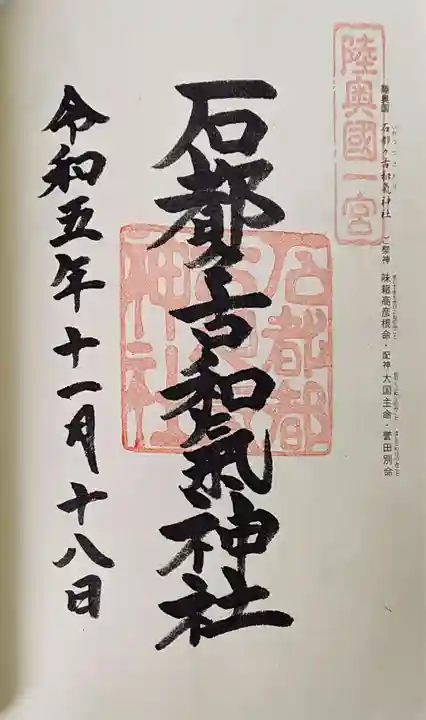 陸奥國一宮
陸奥国 石都々古和氣神社 ご祭神 味耜高彦根命・配神 大国主命・誉田別命
石都々古和氣神社
令和五年十一月十八日